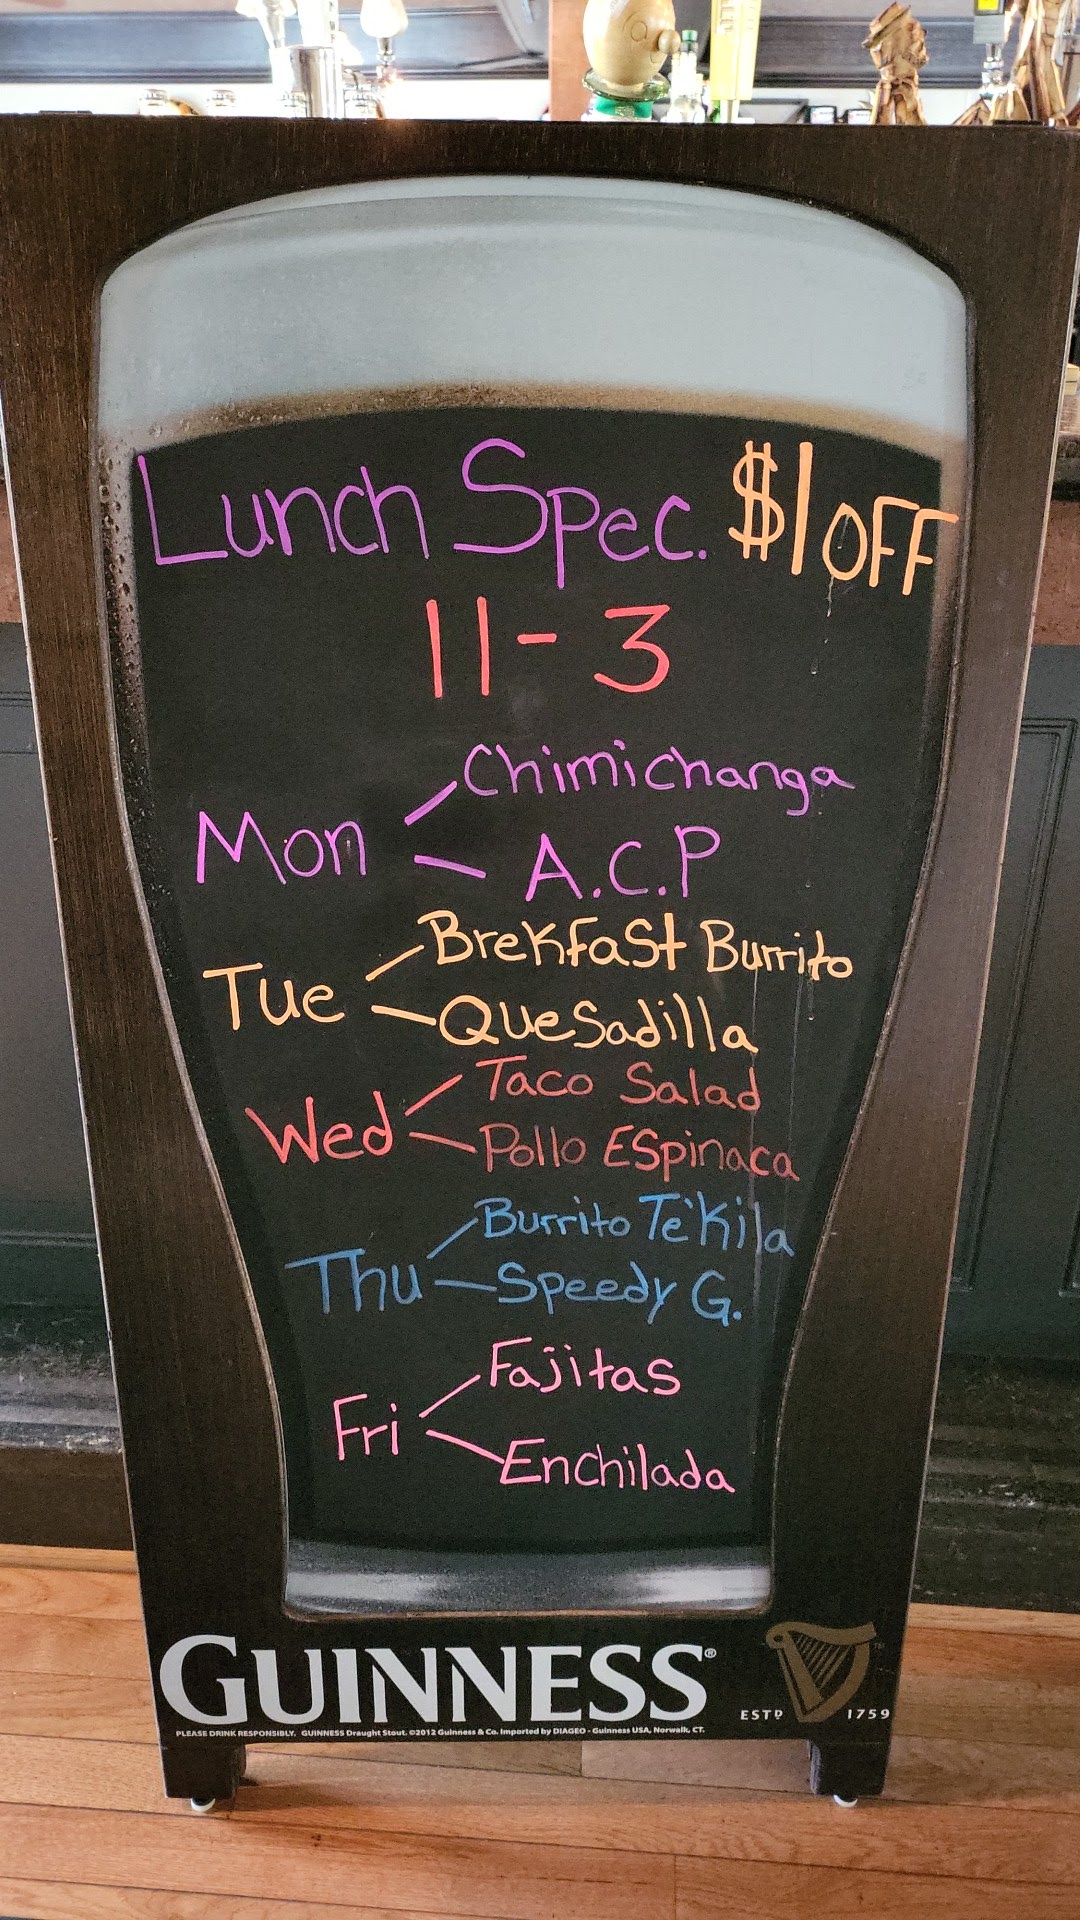 Lunch Spec. $1 OFF
11-3
Mon
Chimichanga
A.C.P
Tue
Brekfast Burrito
Quesadilla
Wed
Taco Salad
Pollo ESpinaca
Thu
Burrito Te'Kila
Speedy G.
Fri
Fajitas
Enchilada
GUINNESS®
ESTD 1759
PLEASE DRINK RESPONSIBLY. GUINNESS Draught Stout. ©2012 Guinness & Co. Imported by DIAGEO - Guinness USA, Norwalk, CT.